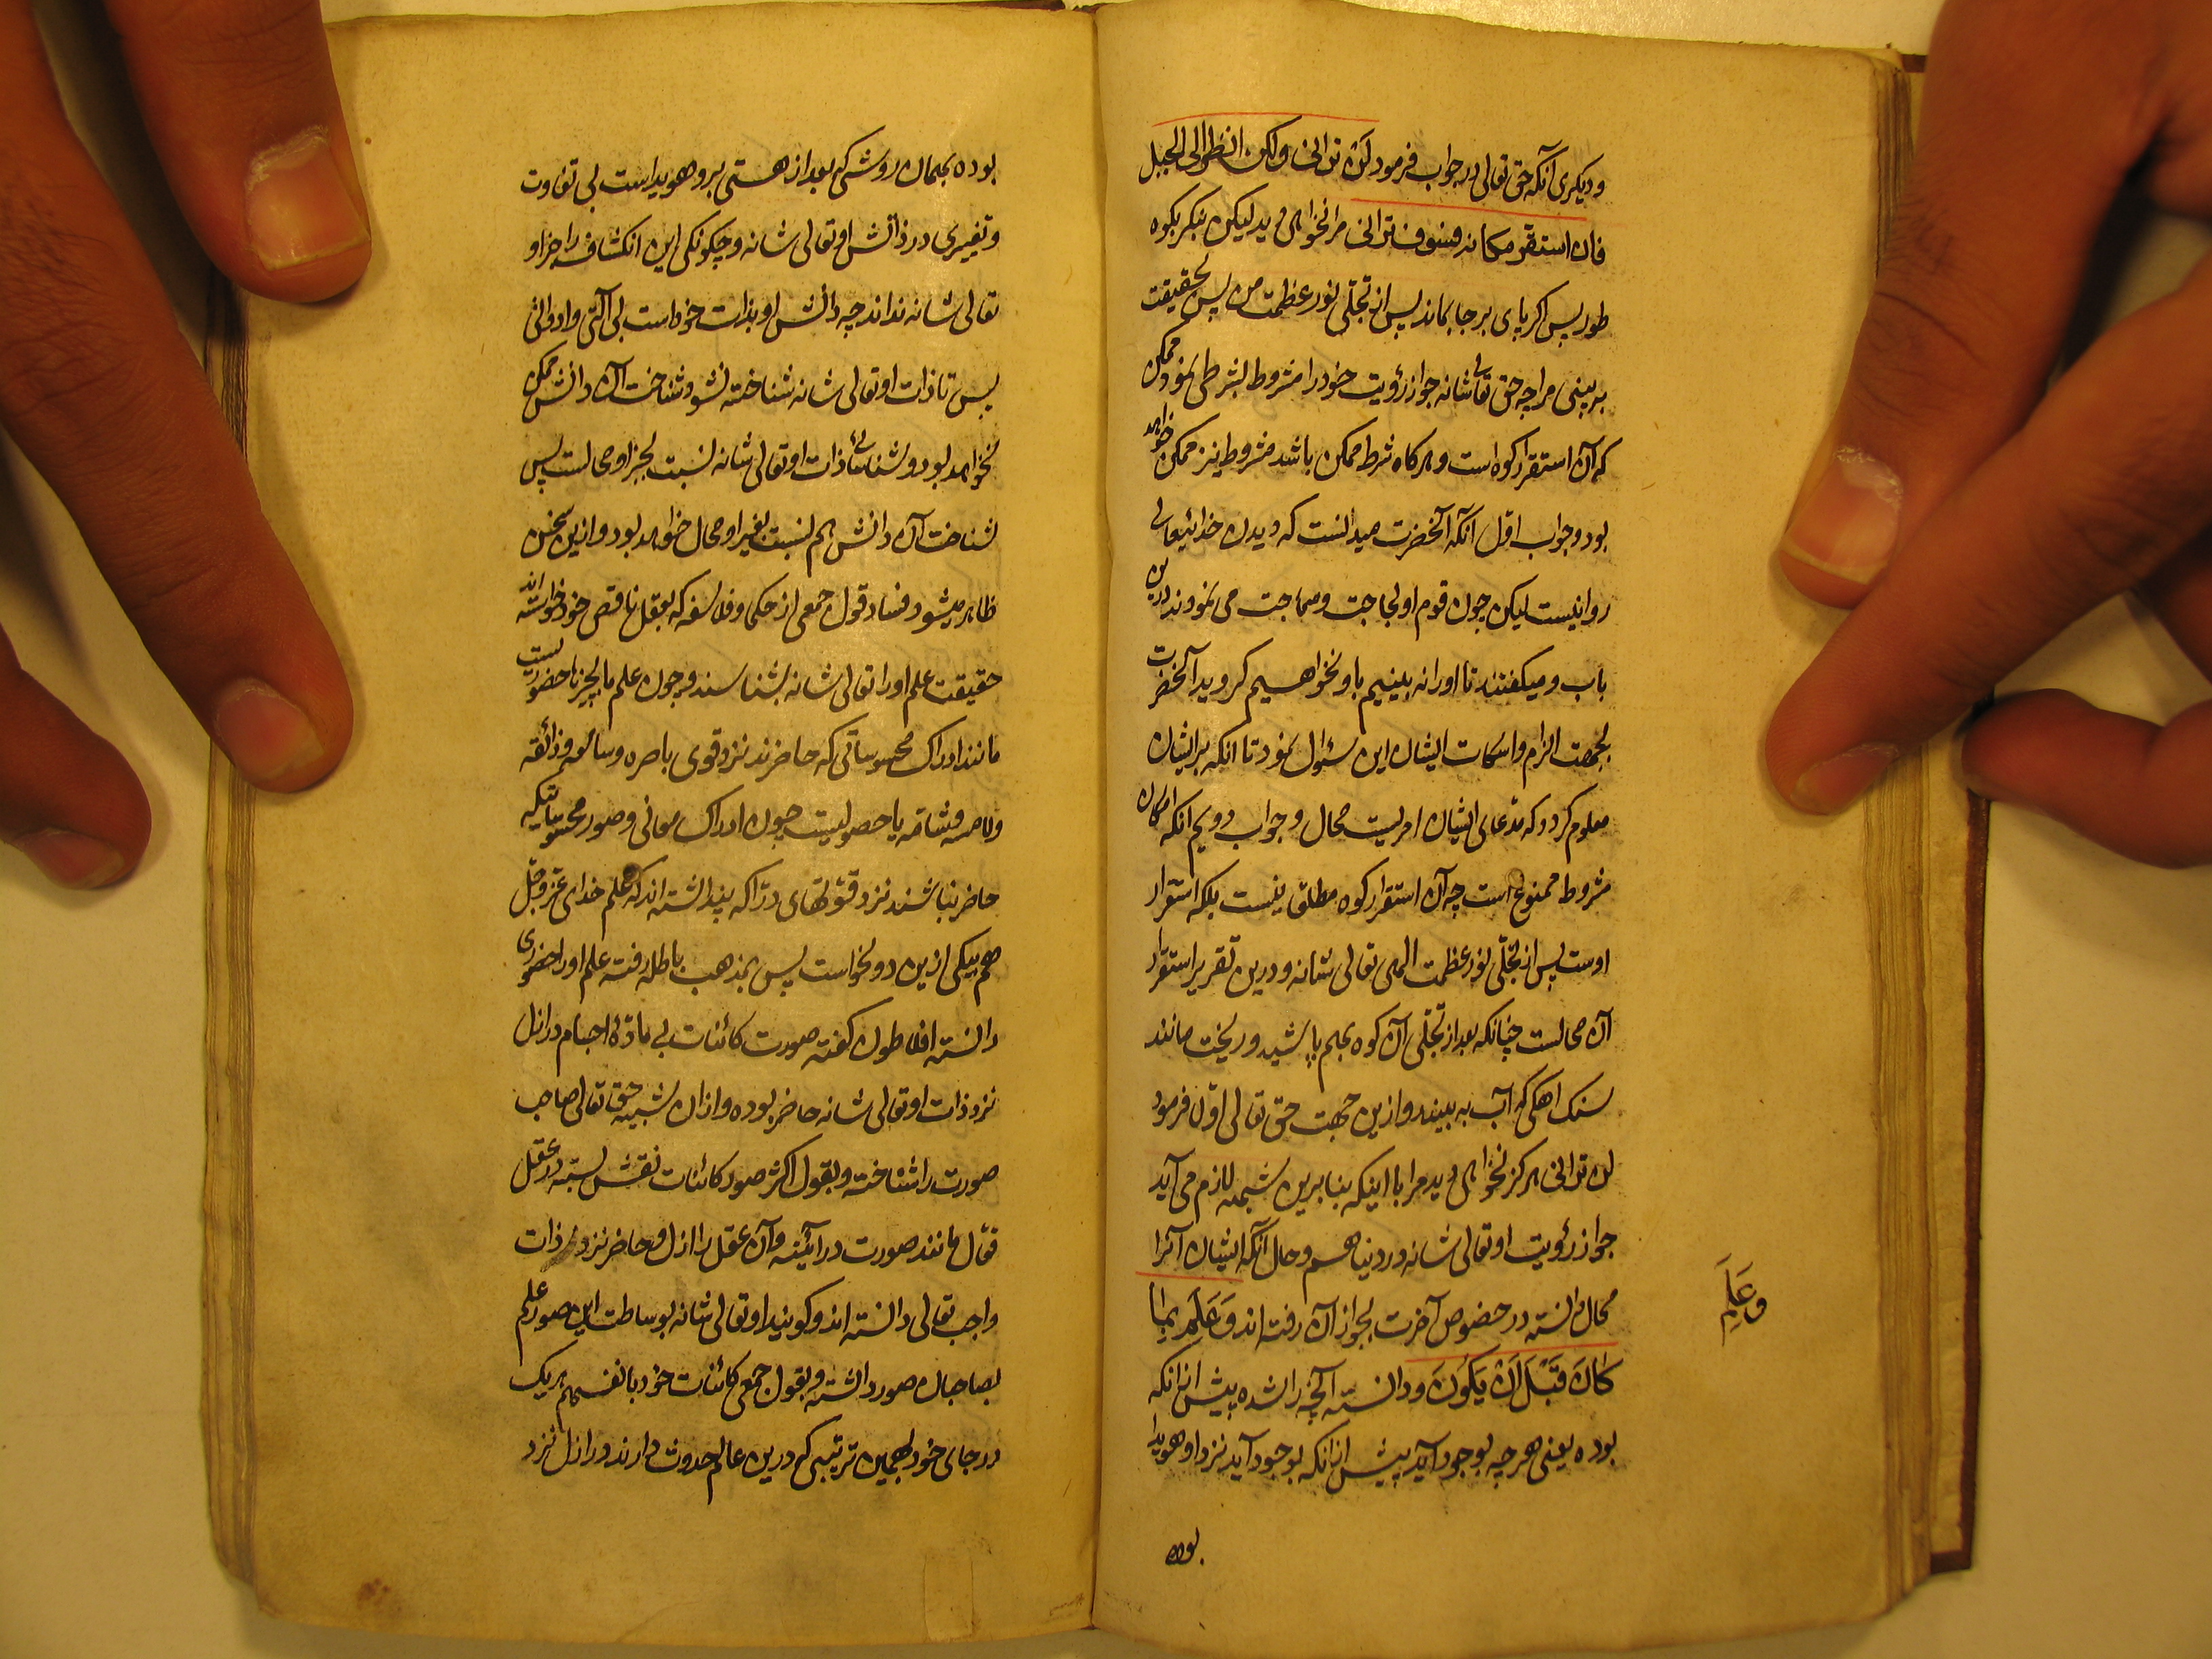 و دیکری آنکه حق تعالی در جواب فرمود لن ترانی ولکن انظر الی الجبل
فان استقر مکانه فسوف ترانی مرا نخواهی دید لیکن بنکر بکوه
طور پس اکر پای بر جا بماند پس از تجلّی نور عظمت من پس بحقیقت
بر بینی مرا چه حق تعالی شانه جواز رؤیت خود را مشروط بشرطی نمود ممکن
که آن استقرار کوه است و هرکاه شرط ممکن باشد مشروط نیز ممکن خواهد
بود و جواب اوّل آنکه آنحضرت میدانست که دیدن خدایتعالی
روا نیست لیکن چون قوم او لجاجت و سماجت می نمودند درین
باب و میکفتند تا او را نه بینیم باو نخواهیم کروید آنحضرت
بجهت الزام و اسکات ایشان این سئوال نمود تا انکه بر ایشان
معلوم کردد که مدّعای ایشان امریست محال و جواب دویم انکه امکان
مشروط ممنوع است چه آن استقرار کوه مطلق نیست بلکه استقرار
اوست پس از تجلّی نور عظمت الهی تعالی شانه و درین تقریر استقرار
آن محالست چنانکه بعد از تجلّی آن کوه بهم پاشید و ریخت مانند
سنک اهکی که آب به بیند و ازین جهت حق تعالی اوّل فرمود
لن ترانی هرکز نخواهی دید مرا با اینکه بنا برین شبهه لازم می آید
جواز رؤیت او تعالی شانه در دنیا هم و حال آنکه ایشان آنرا
محال دانسته در خصوص آخرت بجواز آن رفته اند وَ عَلِمَ بِما
کانَ قَبْلَ اَنْ یَکُونَ و دانسته آنچه را شده پیش از انکه
بوده یعنی هر چه بوجود آید پیش از انکه بوجود آید نزد او هویدا
بوده
وَ عَلِمَ
بوده بهمان روشی که بعد از هستی برو هویداست بی تفاوت
و تغییری در دانش او تعالی شانه و چکونکی این انکشاف را جز او
تعالی شانه نداند چه دانش او بذات خود است بی آلتی و ادواتی
پس تا ذات او تعالی شانه شناخته نشود شناخت آن دانش ممکن
نخواهد بود و شناسائی ذات او تعالی شانه نسبت بجز او محالست پس
شناخت آن دانش هم نسبت بغیر او محال خواهد بود و ازین سخن
ظاهر میشود فساد قول جمعی از حکما و فلاسفه که بعقل ناقص خود خواسته اند
حقیقت علم او را تعالی شانه بشناسند و چون علم ما بچیزها حضوریست
مانند ادراک محسوساتی که حاضرند نزد قوی باصره و سامعه و ذائقه
و لامسه و شامّه یا حصولیست چون ادراک معانی و صور محسوساتیکه
حاضر نباشند نزد قوّتهای درّاکه پنداشته اند که علم خدای عزّ و جلّ
هم بیکی ازین دو نحواست پس بمذهب باطله رفته علم او را حضوری
دانسته افلاطون کفته صورت کائنات بی مادّۀ اجسام در ازل
نزد ذات او تعالی شانه حاضر بوده و از ان شبیه حق تعالی صاحب
صورت را شناخته و بقول اکثر صور کائنات نقش بسته در عقل
فعّال مانند صورت در آئینه و آن عقل را ازل و حاضر نزد ذات
واجب تعالی دانسته اند و کویند او تعالی شانه بوساطت این صور علم
بصاحبان صور داشته و بقول جمعی کائنات خود بانفسهم هریک
در جای خود بهمین ترتیبی که درین عالم حدوث دارند در ازل نزد